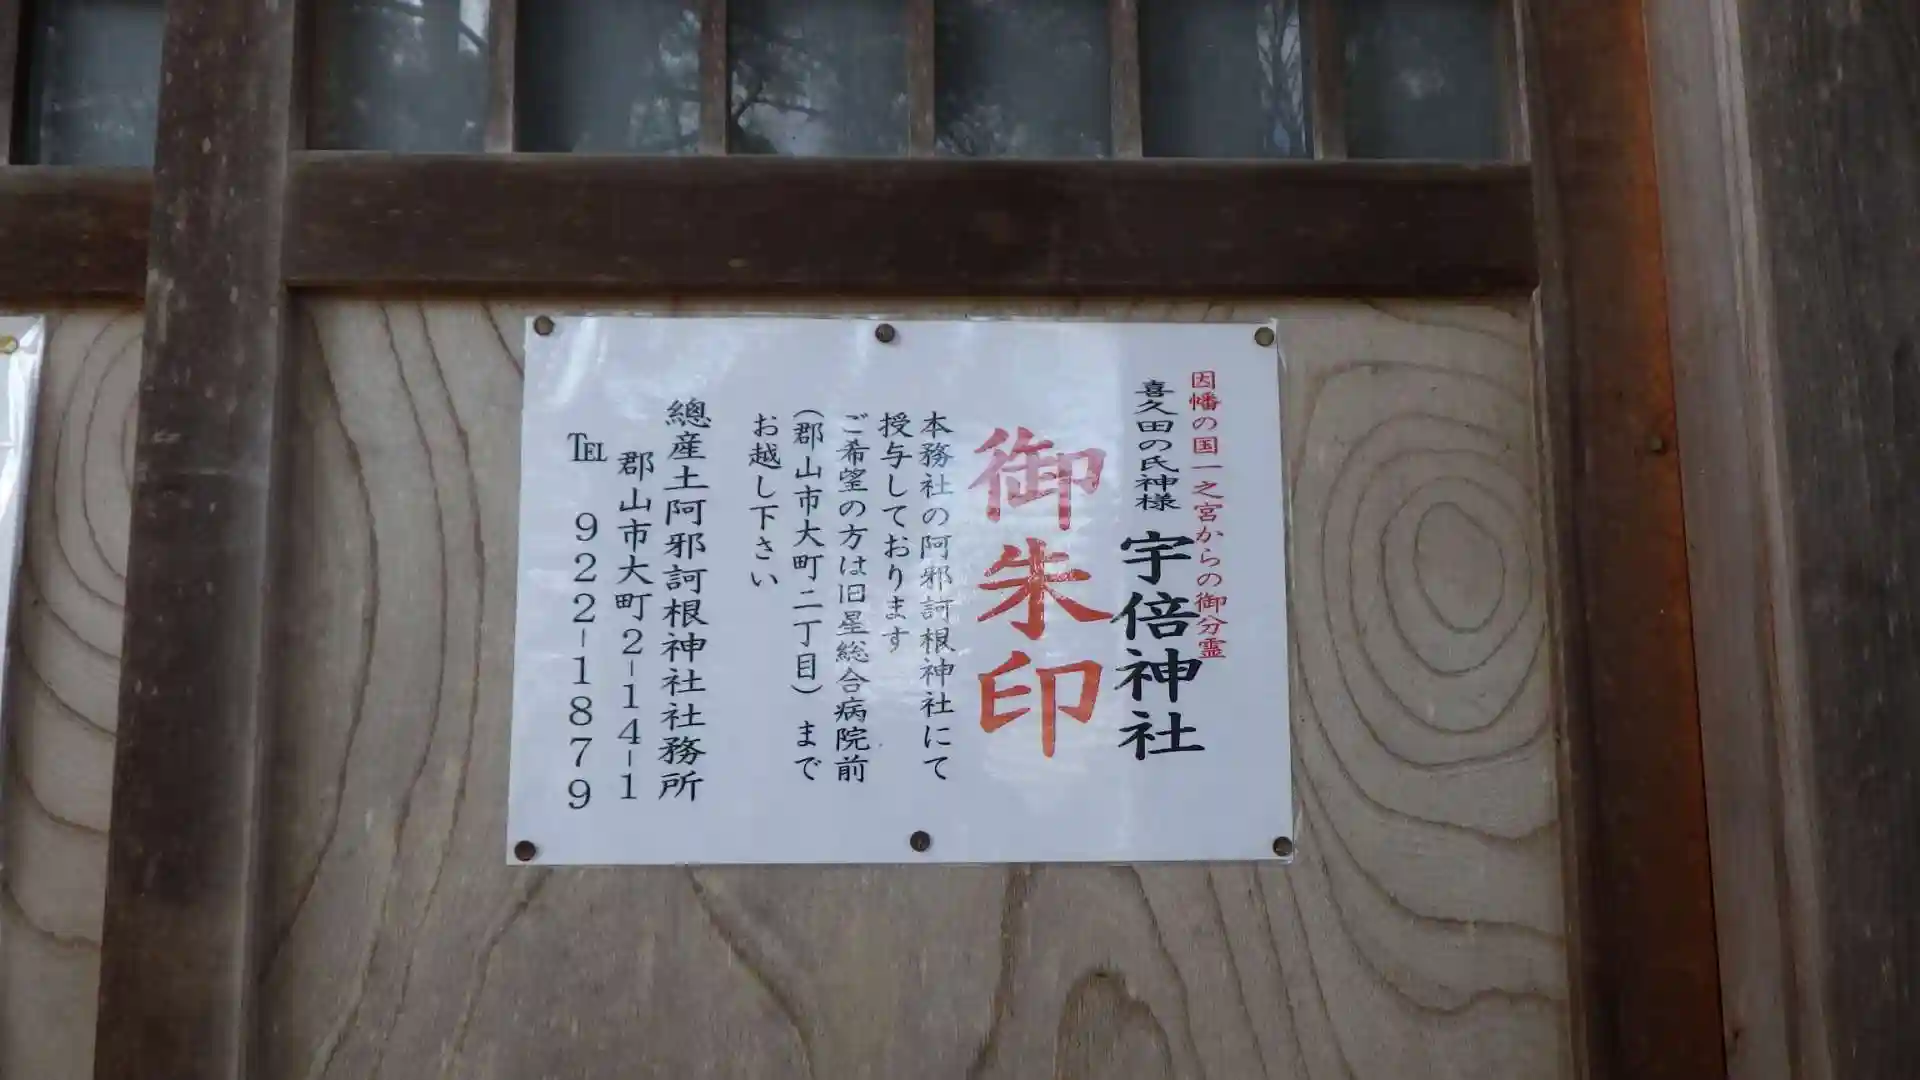 因幡の国一之宮からの御分霊
喜久田の氏神様 宇倍神社
御朱印
本務社の阿邪訶根神社にて
授与しております
ご希望の方は旧星総合病院前
（郡山市大町二丁目）まで
お越し下さい
總産土阿邪訶根神社社務所
郡山市大町2-14-1
TEL 922-1879